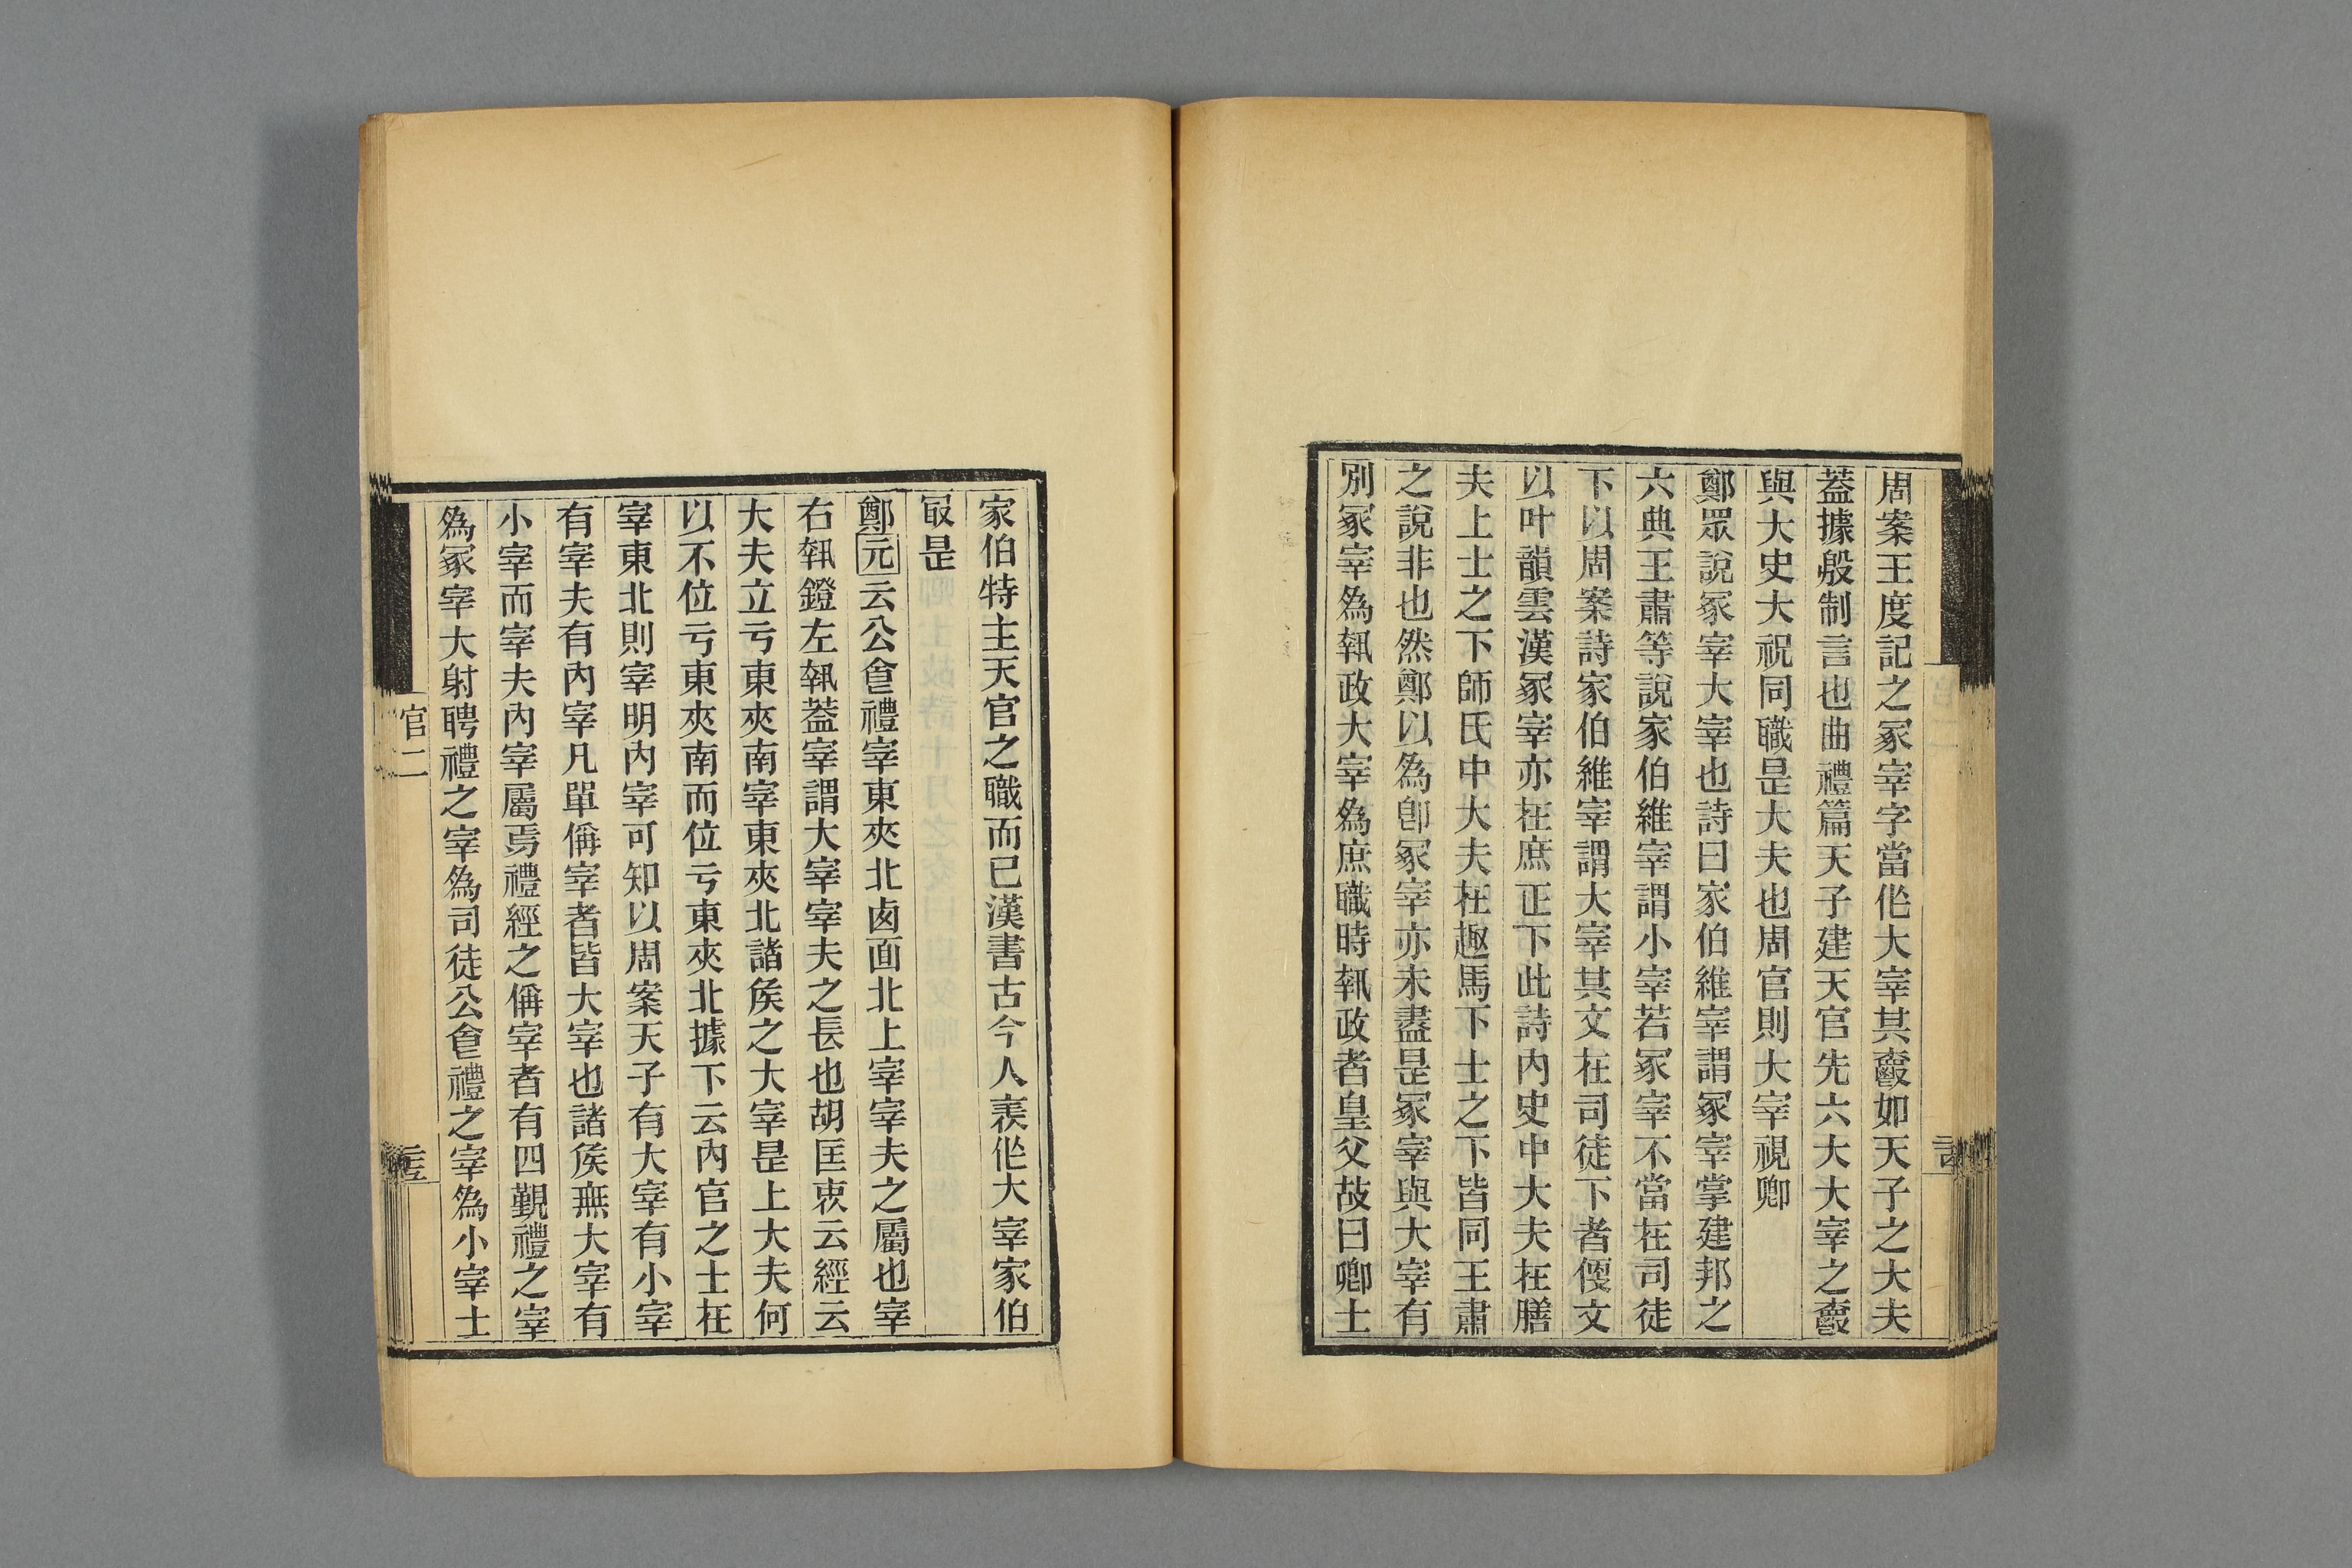 周案王度記之冢宰字當作大宰其𧸇如天子之大夫
蓋據殷制言也曲禮篇天子建天官先六大大宰之𧸇
與大史大祝同職是大夫也周官則大宰視卿
鄭眾說冢宰大宰也詩曰家伯維宰謂冢宰掌建邦之
六典王肅等說家伯維宰謂小宰若冢宰不當在司徒
下以周案詩家伯維宰謂大宰其文在司徒下者㑮文
以叶韻雲漢冢宰亦在庶正下此詩內史中大夫在膳
夫上士之下師氏中大夫在趣馬下士之下皆同王肅
之說非也然鄭以為卽冢宰亦未盡是冢宰與大宰有
別冢宰為執政大宰為庶職時執政者皇父故曰卿士
家伯特主天官之職而已漢書古今人表作大宰家伯
冣是
鄭元云公食禮宰東夾北西面北上宰宰夫之屬也宰
右執鐙左執蓋宰謂大宰宰夫之長也胡匡衷云經云
大夫立亏東夾南宰東夾北諸矦之大宰是上大夫何
以不位亏東夾南而位亏東夾北據下云內官之士在
宰東北則宰明內宰可知以周案天子有大宰有小宰
有宰夫有內宰凡單偁宰者皆大宰也諸矦無大宰有
小宰而宰夫內宰屬焉禮經之偁宰者有四覲禮之宰
為冢宰大射聘禮之宰為司徒公食禮之宰為小宰士
官二